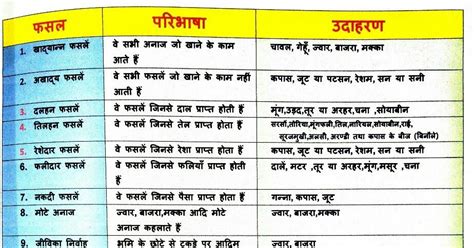 फसल परिभाषा उदाहरण
1. खाद्यान्न फसलें वे सभी अनाज जो खाने के काम आते हैं चावल, गेहूँ, ज्वार, बाजरा,मक्का
2. अखाद्य फसलें वे सभी फसलें जो खाने के काम नहीं आती हैं कपास, जूट या पटसन, रेशम, सन या सनी
3. दलहन फसलें वे फसलें जिनसे दाल प्राप्त होती हैं मूंग,उड़द,तूर या अरहर,चना ,सोयाबीन
4. तिलहन फसलें वे फसलें जिनसे तेल प्राप्त होता हैं सरसों,तोरिया,मूंगफली,तिल,नारियल,सोयाबीन,राई,
सूरजमुखी,अलसी, अरण्डी तथा कपास के बीज (बिनौले)
5. रेशेदार फसलें वे फसलें जिनसे रेशा प्राप्त होता हैं कपास, जूट या पटसन, रेशम, सन या सनी
6. फलीदार फसलें वे फसलें जिनसे फलियाँ प्राप्त होती हैं दालें, मटर ,तूर या अरहर,मूंग,मसूर ,चना
7. नकदी फसलें वे फसलें जिनसे पैसा प्राप्त होता हैं गन्ना, कपास, जूट
8. मोटे अनाज ज्वार, बाजरा,मक्का आदि मोटे अनाज कहलाते हैं ज्वार, बाजरा,मक्का
9. जीविका निर्वाह भूमि के छोटे से टुकड़े पर आदिम